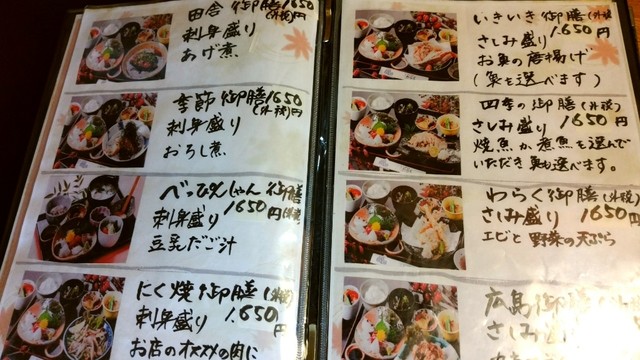 田舎御膳1650
(外税)円
刺身盛り
あげ煮
季節御膳1650
(外税)円
刺身盛り
おろし煮
べっぴんしゃん御膳
刺身盛り 1650円(外税)
豆乳だご汁
にく焼御膳(外税)
刺身盛り 1.650円
お店のオススメの肉に
いきいき御膳(外税)
さしみ盛り 1.650円
お魚の唐揚げ
(魚も選べます)
四季の御膳(外税)
さしみ盛り 1650円
焼魚か煮魚を選んで
いただき魚も選べます。
わらく御膳(外税)
さしみ盛り 1650円
エビと野菜の天ぷら
広島御膳
さしみ